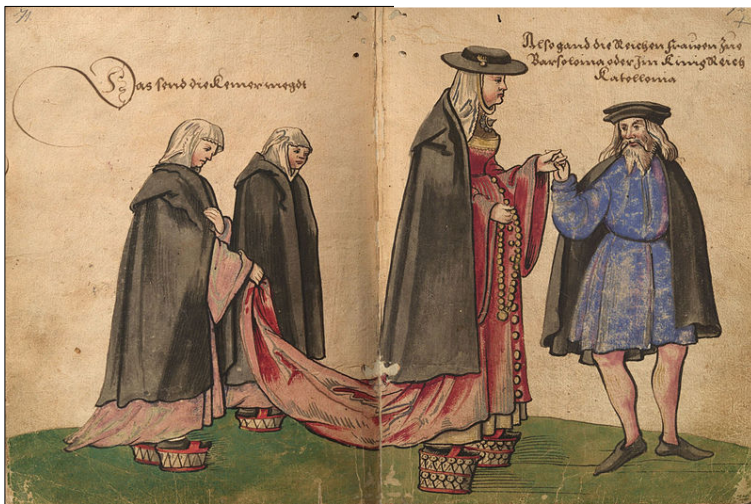 Das send die Kemermegdt
Also gand die Reichen frauwen Zue
Barsolonia oder Im Kinig Reich
Katollonia